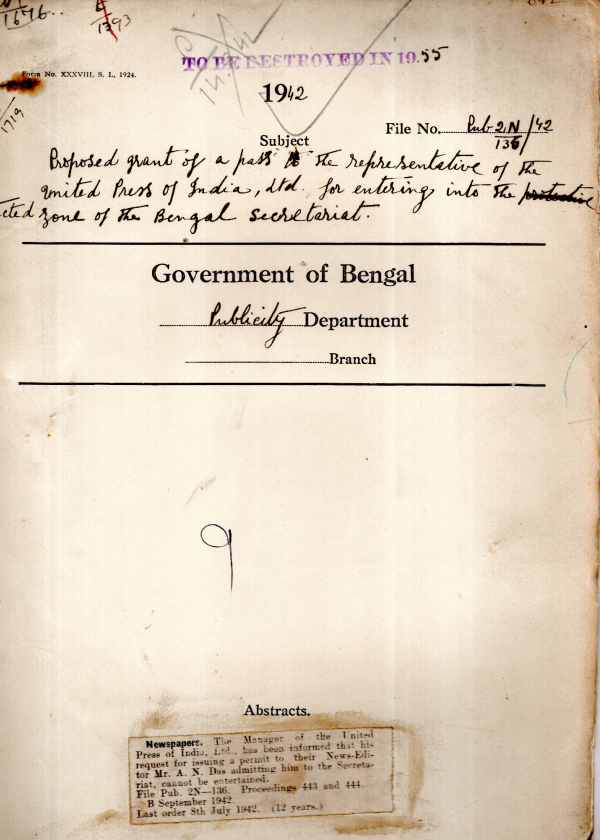 1676..
1393
TO BE DESTROYED IN 19.55
Form No. XXXVIII, S. I., 1924.
1719
1942
File No. Pub 2N/136/42
Subject
Proposed grant of a pass to the representative of the
United Press of India, Ltd. for entering into the protective
cted zone of the Bengal Secretariat.
Government of Bengal
Publicity Department
Branch
9
Abstracts.
Newspapers. The Manager of the United
Press of India, Ltd., has been informed that his
request for issuing a permit to their News-Edi-
tor Mr. A. N. Das admitting him to the Secreta-
riat, cannot be entertained.
File Pub. 2N—136. Proceedings 443 and 444.
B September 1942.
Last order 8th July 1942. (12 years.)